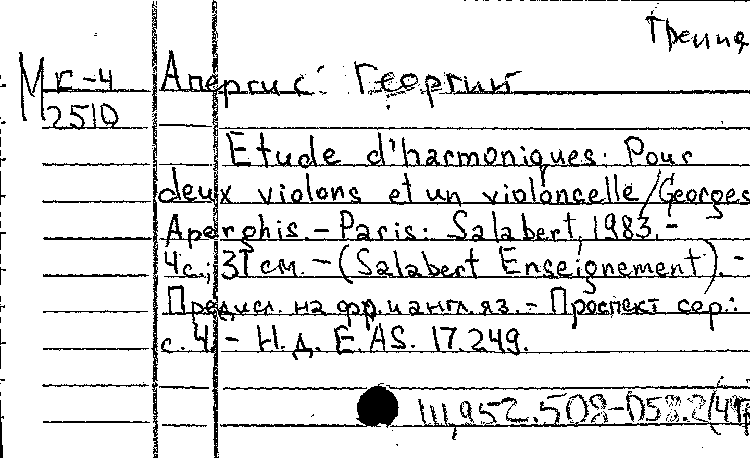 Греция
М К-4 Апергис Георгий
2510
Etude d'harmoniques: Pour
deux violons et un violoncelle/Georges
Aperghis.- Paris: Salabert, 1983.-
4с.; 31см. - (Salabert Enseignement). -
Предисл. на фр. и англ. яз. - Проспект сер.:
с. 4. - Н.д. E.AS. 17.249.
Ш,952.508-058.2(4Гр